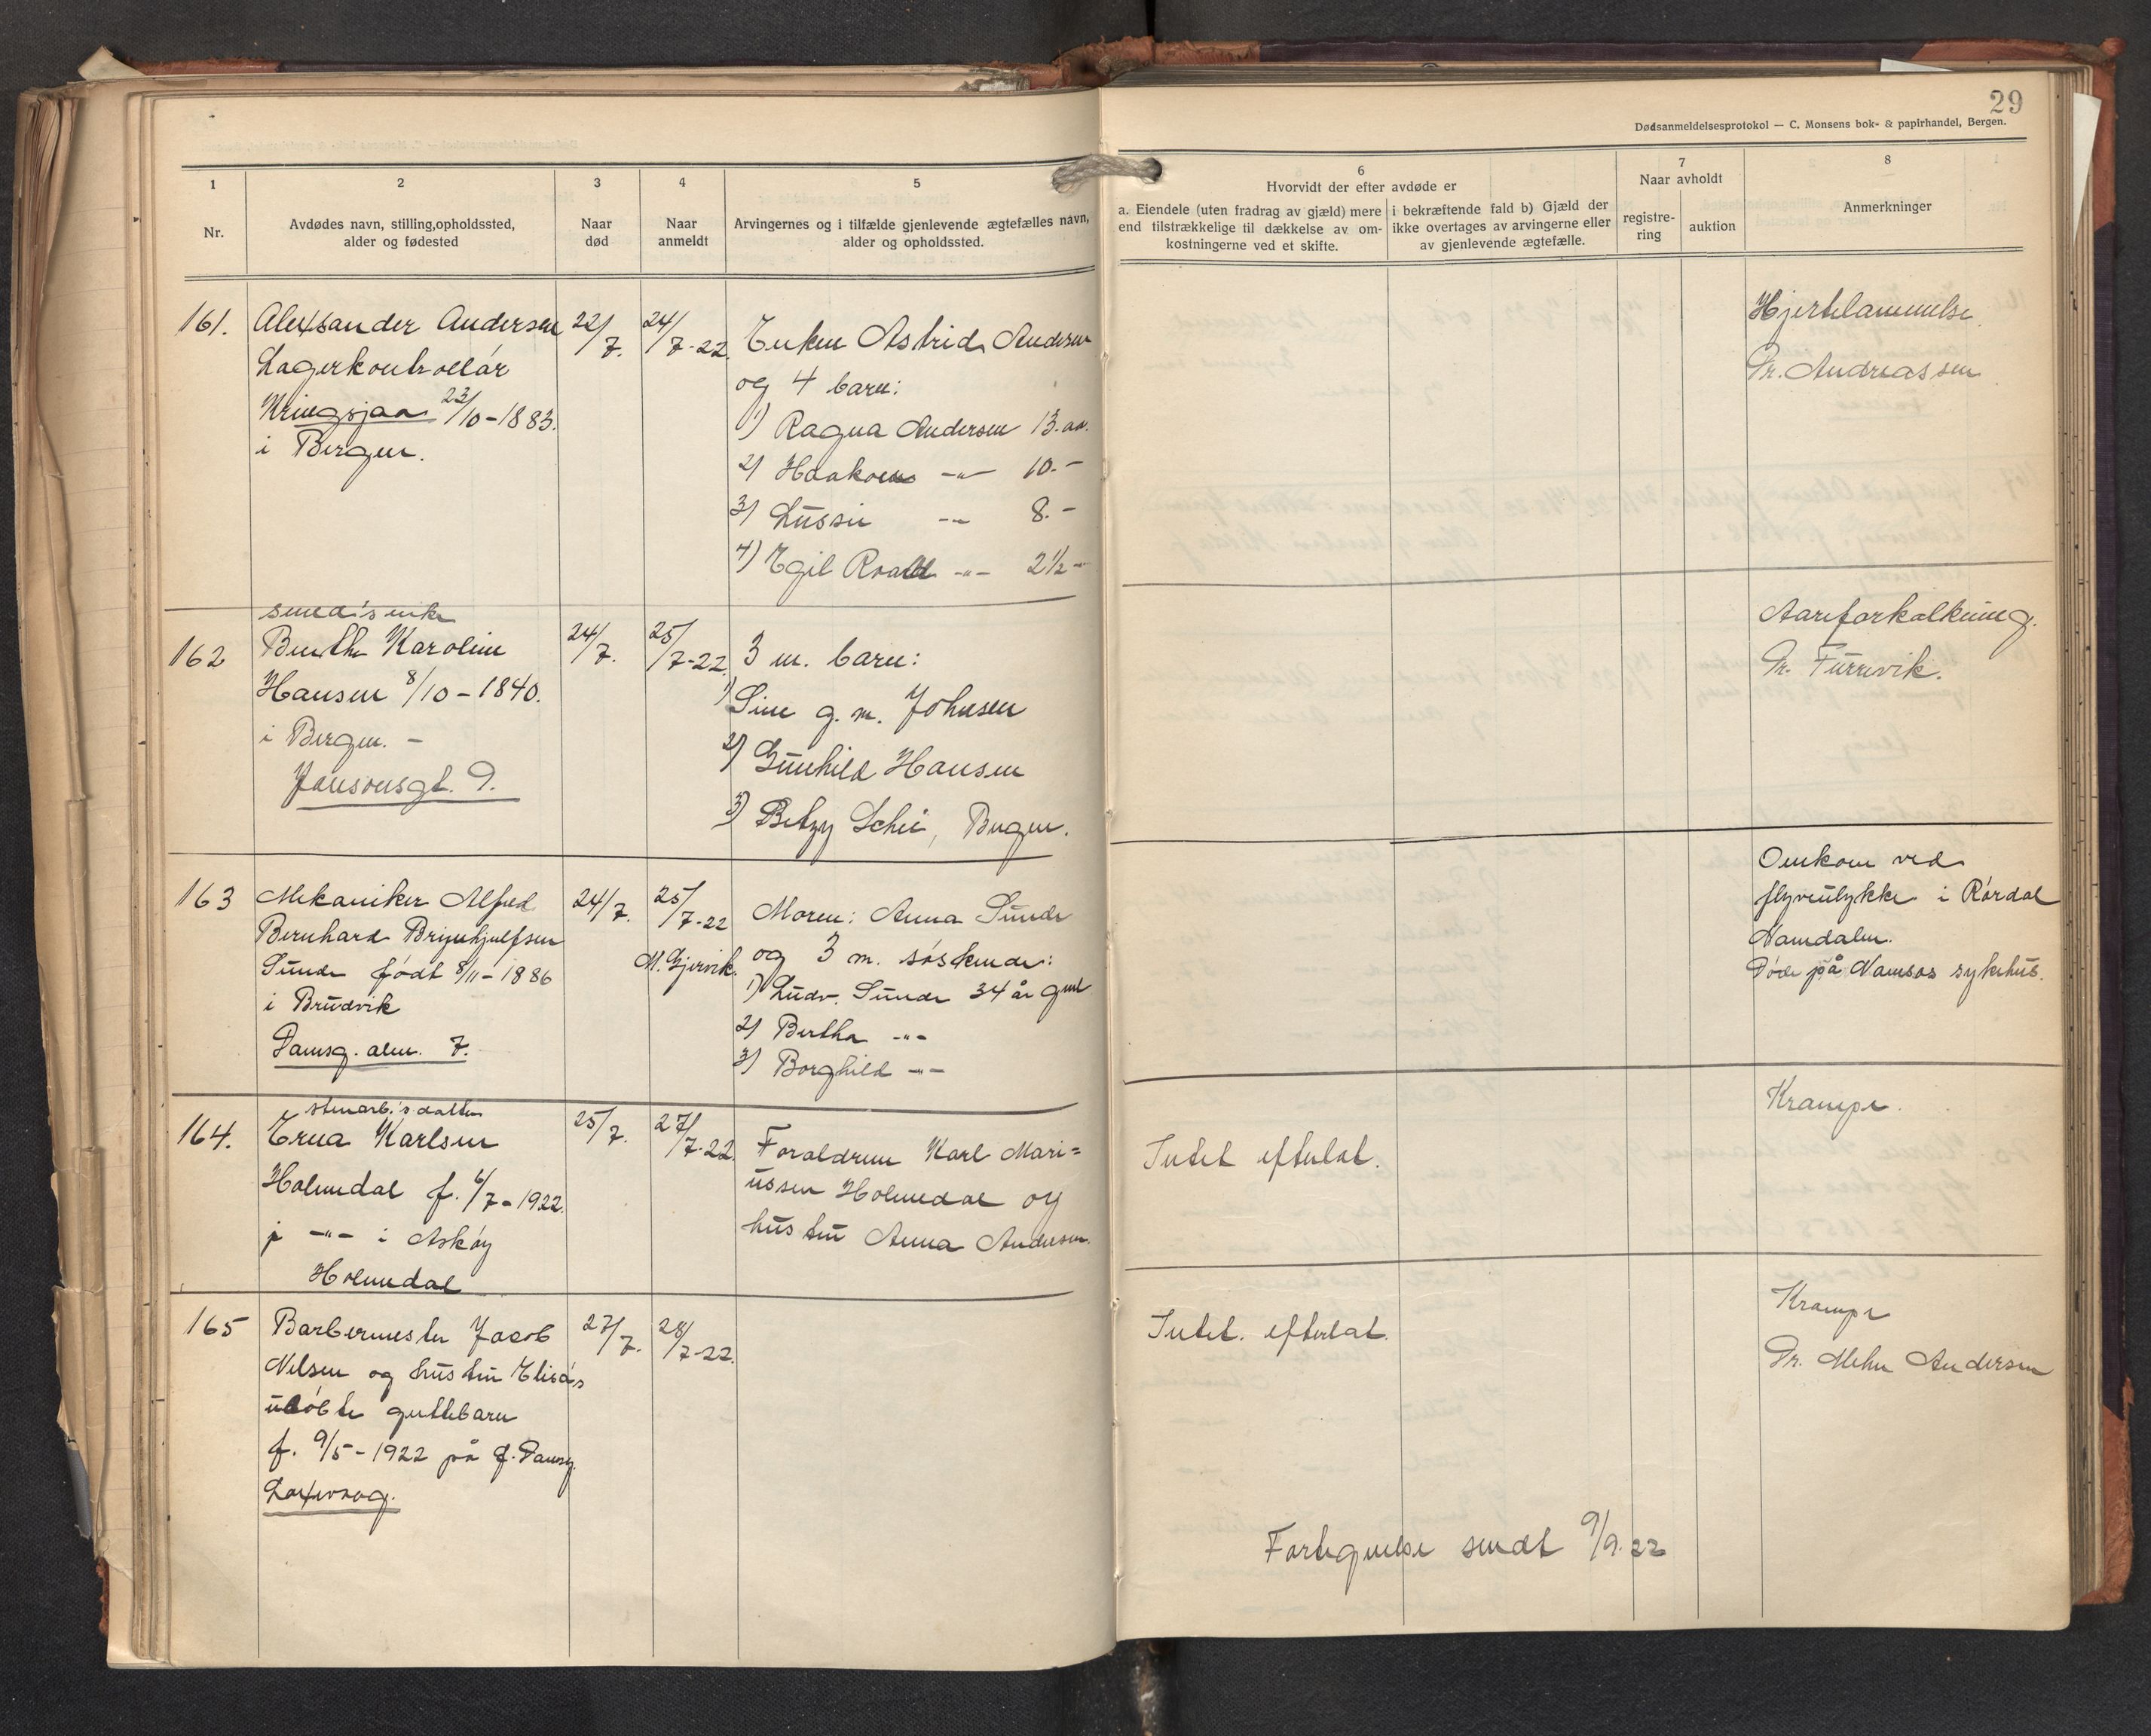 29
Dødsanmeldelsesprotokol — C. Monsens bok- & papirhandel, Bergen.
1
Nr.
2
Avdødes navn, stilling,opholdssted,
alder og fødested
3
Naar
død
4
Naar
anmeldt
5
Arvingernes og i tilfælde gjenlevende ægtefælles navn,
alder og opholdssted.
6
Hvorvidt der efter avdøde er
a. Eiendele (uten fradrag av gjæld) mere
end tilstrækkelige til dækkelse av om-
kostningerne ved et skifte.
i bekræftende fald b) Gjæld der
ikke overtages av arvingerne eller
av gjenlevende ægtefælle.
7
Naar avholdt
registre-
ring
auktion
8
Anmerkninger
161.
Alexsander Andersen
Lagerkontrollør
Kringsjaa 23/10-1883.
i Bergen.
22/7.
24/7-22.
Enken Astrid Andersen
og 4 barn:
1) Ragna Andersen 13. aar.
2) Haakon -"- 10.-
3) Lussie -"- 8.-
4) Egil Roald -"- 2½-
Hjertelammelse
Dr. Andreassen
162
smed's enke
Benthe Karoline
Hansen 8/10-1840.
i Bergen. -
Jansonsgt. 9.
24/7.
25/7-22.
3 m. barn:
1) Sine g. m. Johnsen
2) Gunhild Hansen
3) Betzy Schei, Bergen.
Aareforkalkning.
Dr. Furevik.
163
Mekaniker Alfred
Bernhard Brynhjulfsen
Sunde født 8/11-1886
i Bruvik
Damsg. alm. 7.
24/7.
25/7-22
M. Gjervik.
Moren: Anna Sunde
og 3 m. søskende:
1) Ludv. Sunde 34 år gml
2) Bertha -"-
3) Borghild -"-
Omkom ved
flyveulykke i Rørdal
Namdalen.
Døde på Namsos sykehus.
164.
stenarb.'s datter
Erna Karlsen
Holmedal f. 6/7-1922.
på -"- i Askøy
Holmedal
25/7.
27/7-22.
Foraldrene Karl Mari=
ussen Holmedal og
hustru Anna Andersen.
Intet efterlat.
Krampe.
165
Barbermester Jacob
Nilsen og hustru Elisa's
udøbte guttebarn
f. 9/5-1922 på f. Damsg.
Laxevaag.
27/7.
28/7-22.
Intet. efterlat.
Krampe
Dr. Mehn Andersen
Fortegnelse sendt 9/9.22